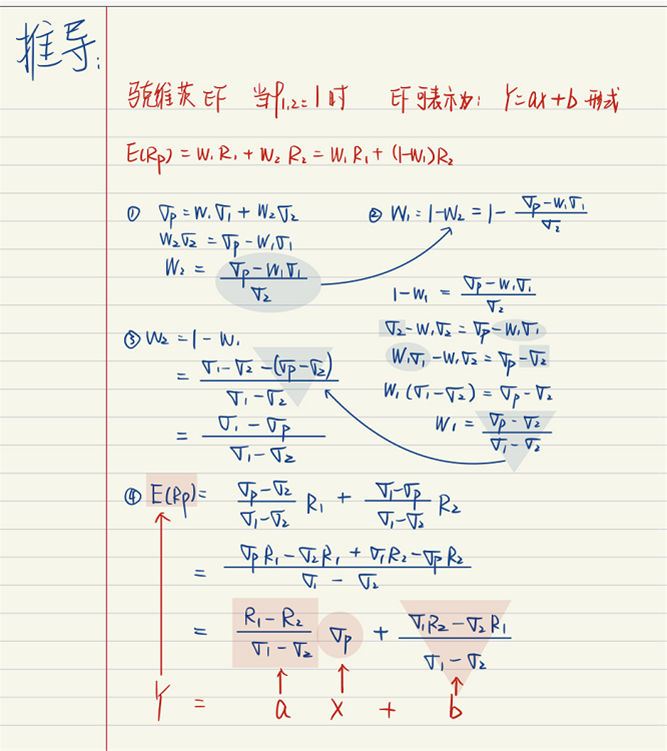 推导:
马克维茨 EF 当ρ1,2=1时 EF可表示为: Y=ax+b 形式
E(Rp) = W1R1 + W2R2 = W1R1 + (1-W1)R2
① σp = W1σ1 + W2σ2
W2σ2 = σp - W1σ1
W2 = (σp - W1σ1)/σ2
② W1 = 1-W2 = 1 - (σp - W1σ1)/σ2
1-W1 = (σp - W1σ1)/σ2
σ2 - W1σ2 = σp - W1σ1
W1σ1 - W1σ2 = σp - σ2
W1(σ1-σ2) = σp - σ2
W1 = (σp - σ2)/(σ1 - σ2)
③ W2 = 1 - W1
= (σ1 - σ2 - (σp - σ2))/(σ1 - σ2)
= (σ1 - σp)/(σ1 - σ2)
④ E(Rp) = (σp-σ2)/(σ1-σ2) R1 + (σ1-σp)/(σ1-σ2) R2
= (σpR1 - σ2R1 + σ1R2 - σpR2)/(σ1 - σ2)
= (R1 - R2)/(σ1 - σ2) σp + (σ1R2 - σ2R1)/(σ1 - σ2)
Y = a x + b